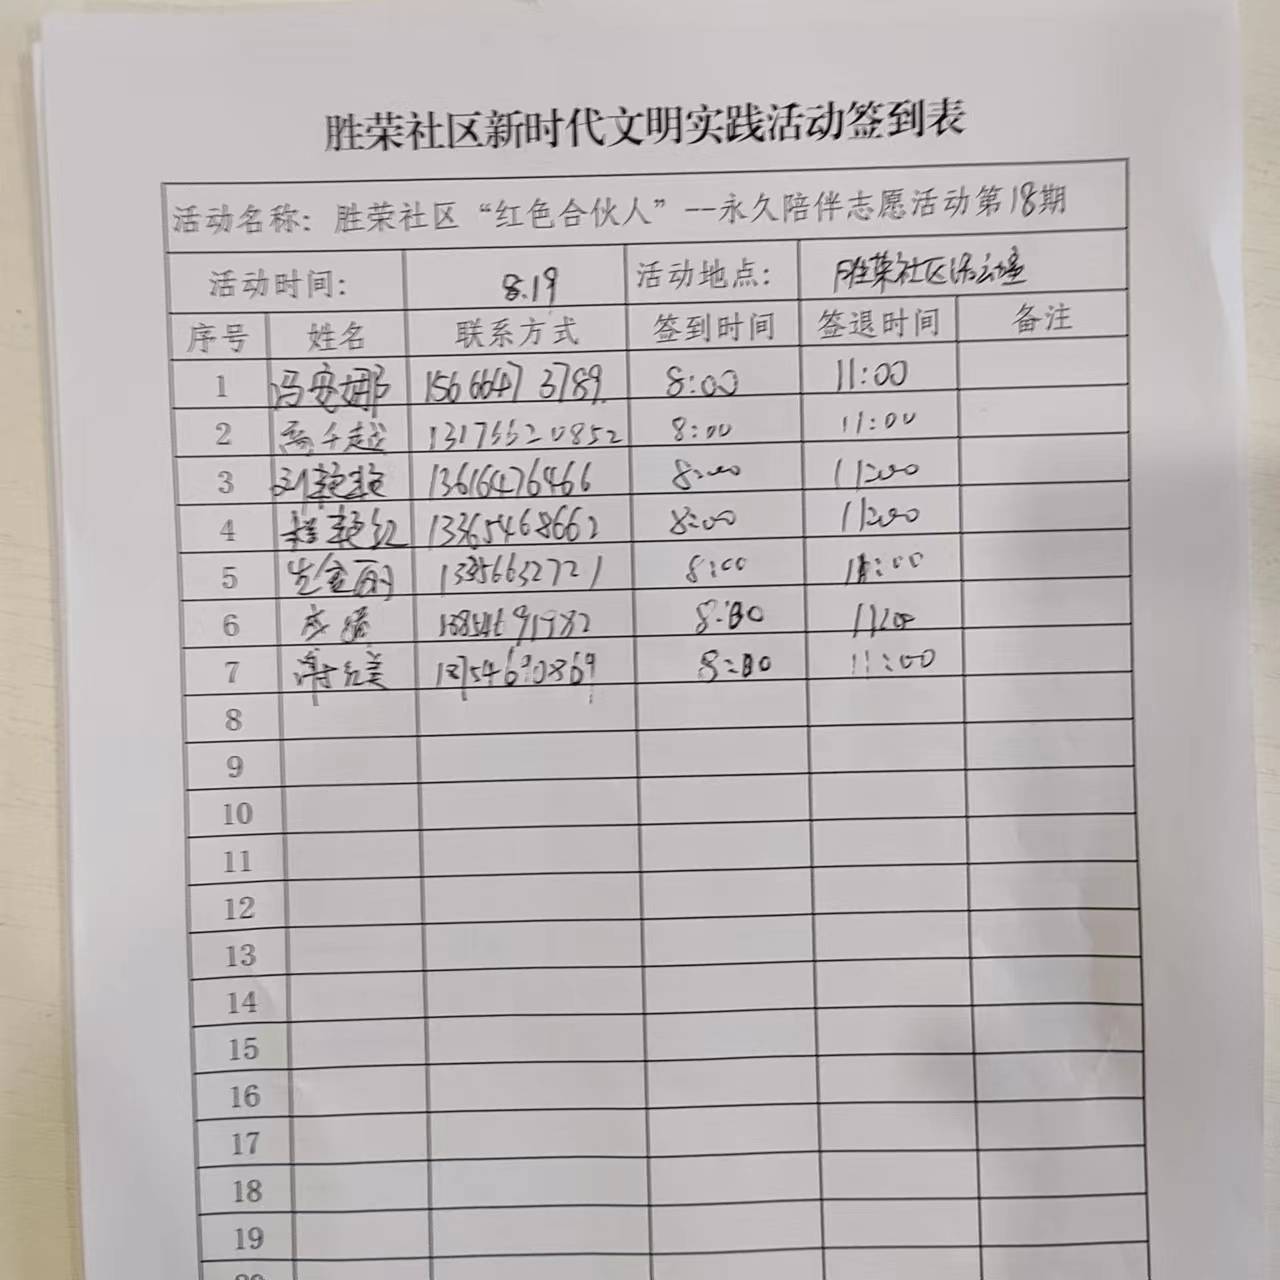 胜荣社区新时代文明实践活动签到表
活动名称：胜荣社区“红色合伙人”--永久陪伴志愿活动第18期
活动时间： 8.19 活动地点： 胜荣社区活动室
序号 姓名 联系方式 签到时间 签退时间 备注
1 冯安娜 15666473789 8:00 11:00
2 高千越 13176620852 8:00 11:00
3 刘艳艳 13616476466 8:00 11:00
4 程艳红 13365468662 8:00 11:00
5 8:00 11:00
6 13854691982 8:00 11:00
7 谢红美 8:00 11:00
8
9
10
11
12
13
14
15
16
17
18
19
20